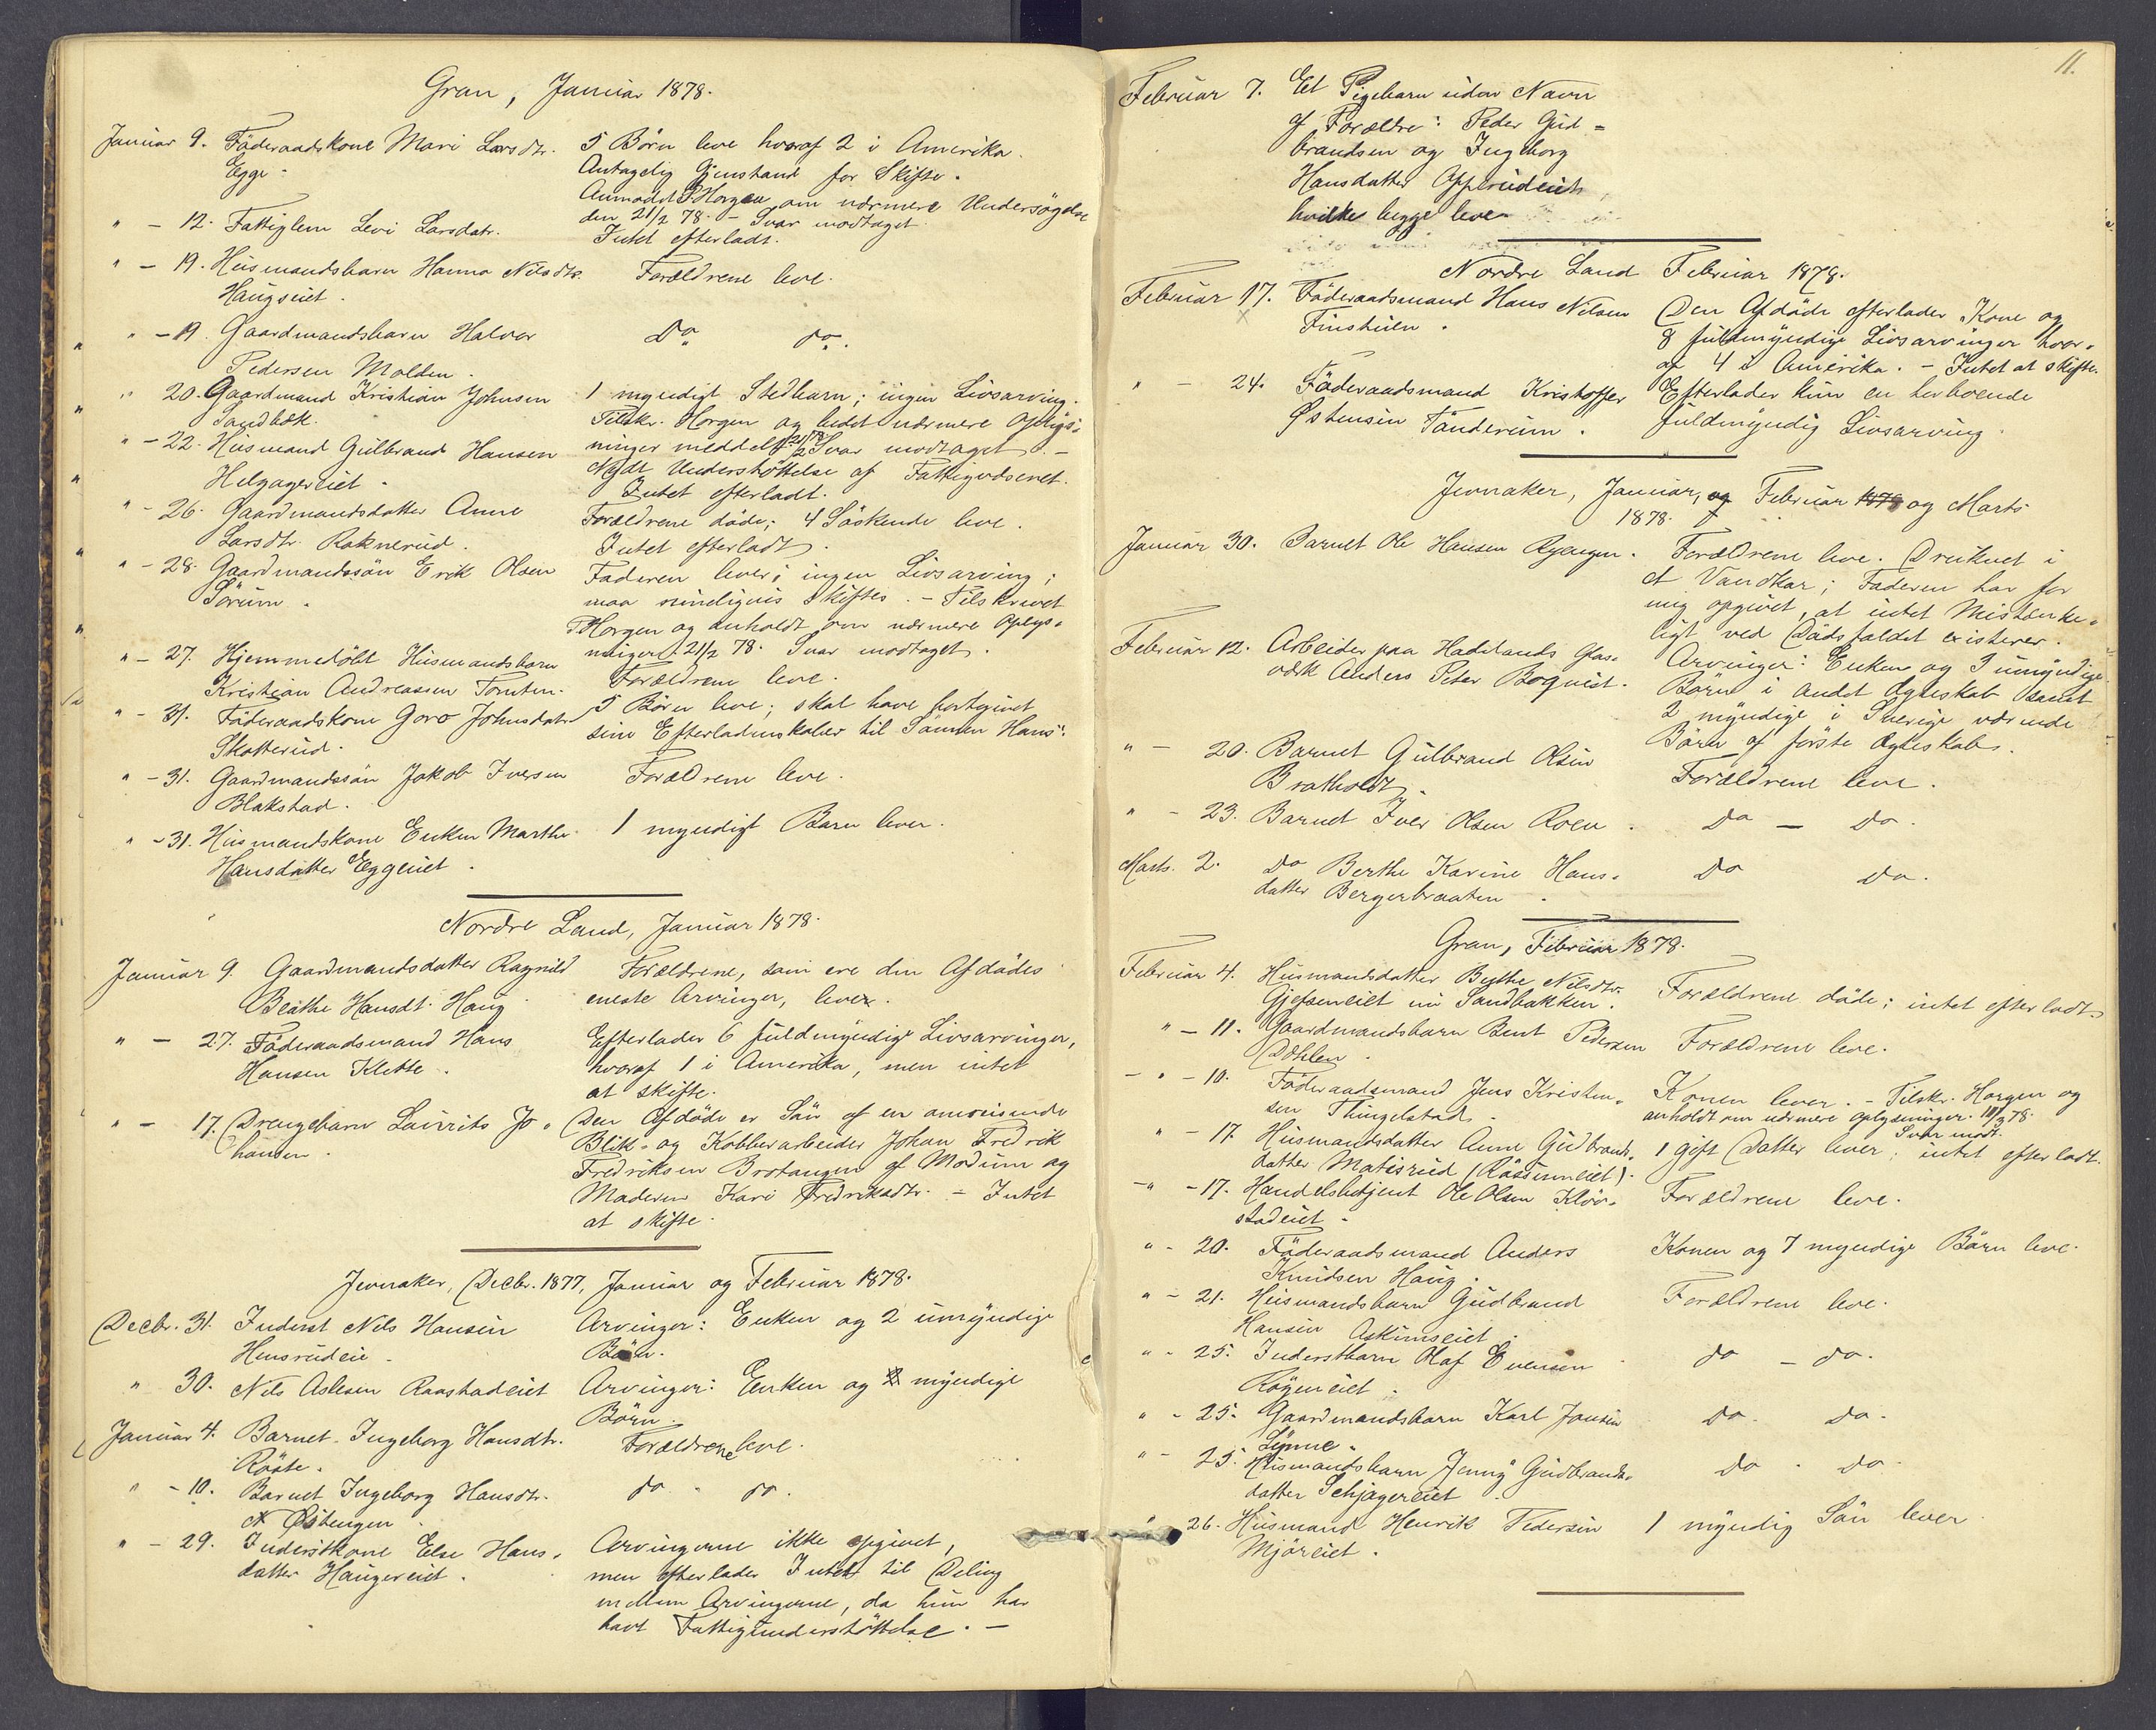 Gran, Januar 1878.
Januar 9. Föderaadskone Mari Larsdtr. 5 Börn leve hvoraf 2 i Amerika.
Egge. Antagelig Gjenstand for Skifte.
Anmodet Horgen om nærmere Undersögelse
den 21/2 78. – Svar modtaget.
" – 12. Fattiglem Levi Larsdatr. Intet efterladt.
" – 19. Husmandsbarn Hanna Nilsdtr. Forældrene leve.
Haugseiet.
" – 19. Gaardmandsbarn Halvor Do do.
Pedersen Molden.
" 20. Gaardmand Kristian Johnsen 1 myndigt Stedbarn; ingen Livsarving.
Sandbæk. Tilskr. Horgen og bedet nærmere Oplys-
ninger meddelt 21/2 78 Svar modtaget. –
" – 22. Husmand Gulbrand Hansen Nydt Understöttelse af Fattigvæsenet.
Helgagereiet. Intet efterladt.
" – 26. Gaardmandsdatter Anne Forældrene döde; 4 Söskende leve.
Larsdtr. Raknerud. Intet efterladt.
" – 28. Gaardmandssön Erik Olsen Faderen lever; ingen Livsarving;
Sörum. maa rimeligvis skiftes. – Tilskrevet
Horgen og anholdt om nærmere Oplys-
ninger 21/2 78. Svar modtaget.
" – 27. Hjemmedöbt Husmandsbarn Forældrene leve.
Kristian Andreassen Tomten.
" – 31. Föderaadskone Goro Johnsdatr. 5 Börn leve; skal have bortgivet
Skatterud. sine Efterladenskaber til Sönnen Hans.
" – 31. Gaardmandssön Jakob Iversen Forældrene leve.
Blakstad.
" – 31. Husmandskone Enken Marthe 1 myndigt Barn lever.
Hansdatter Eggeeiet.
Nordre Land, Januar 1878.
Januar 9. Gaardmandsdatter Ragnild Forældrene, som ere den Afdödes
Beathe Hansdt. Haug eneste Arvinger, lever.
" – 27. Föderaadsmand Hans Efterlader 6 fuldmyndige Livsarvinger,
Hansen Klette. hvoraf 1 i Amerika, men intet
at skifte.
" – 17. Drengebarn Laurits Jo- Den Afdöde er Sön af en omreisende
hansen. Blik- og Kobberarbeider Johan Fredrik
Fredriksen Brotangen af Modum og
Moderen Kari Fredriksdtr. – Intet
at skifte.
Jevnaker, Decbr. 1877, Januar og Februar 1878.
Decbr. 31. Inderst Nils Hansen Arvinger: Enken og 2 umyndige
Hensrudeie. Börn.
" 30. Nils Aslesen Raastadeiet Arvinger: Enken og myndige
Börn.
Januar 4. Barnet Ingeborg Hansdtr. Forældrene leve.
Röste.
" – 10. Barnet Ingeborg Hansdtr. do do.
N Østengen.
" – 29. Inderstkone Else Hans- Arvingerne ikke opgivet,
datter Haugereiet. men efterlader Intet til Deling
mellem Arvingerne, da hun har
havt Fattigunderstöttelse. –
11.
Februar 7. Et Pigebarn uden Navn
af Forældre: Peder Gud-
brandsen og Ingeborg
Hansdatter Opperudeiet
hvilke begge leve.
Nordre Land Februar 1878.
Februar 17. Föderaadsmand Hans Nilsen Den Afdöde efterlader Kone og
Finshuen. 8 fuldmyndige Livsarvinger hvor-
af 4 i Amerika. – Intet at skifte.
" – 24. Föderaadsmand Kristoffer Efterlader kun en herboende
Østensen Tönderum. fuldmyndig Livsarving.
Jevnaker, Januar, og Februar 1878 og Marts
1878.
Januar 30. Barnet Ole Hansen Ryengen. Forældrene leve. Druknet i
et Vandkar; Faderen har for
mig opgivet, at intet Mistænke-
ligt ved Dödsfaldet existerer.
Februar 12. Arbeider paa Hadelands Glas- Arvinger: Enken og 3 umyndige
værk Anders Peter Boquist. Börn i andet Ægteskab samt
2 myndige i Sverige værende
Börn af förste Ægteskab.
" – 20. Barnet Gulbrand Olsen Forældrene leve.
Bratholdt.
" – 23. Barnet Iver Olsen Roen. Do – Do.
Marts. 2. Do Berthe Karine Hans- Do Do.
datter Bergerbraaten.
Gran, Februar 1878.
Februar 4. Husmandsdatter Berthe Nilsdtr. Forældrene döde; intet efterladt.
Gjefseneiet nu Sandbakken.
" – 11. Gaardmandsbarn Bent Pedersen Forældrene leve.
Dæhlen.
" – 10. Föderaadsmand Jens Kristen- Konen lever. – Tilskr. Horgen og
sen Thingelstad. anholdt om nærmere oplysninger. 18/3 78.
Svar modt.
" – 17. Husmandsdatter Anne Gudbrands- 1 gift Datter lever; intet efterladt.
datter Matisrud (Rössumeiet).
" – 17. Handelsbetjent Ole Olsen Klöv- Forældrene leve.
stadeiet.
" – 20. Föderaadsmand Anders Konen og 7 myndige Börn leve.
Knudsen Haug.
" – 21. Husmandsbarn Gudbrand Forældrene leve.
Hansen Askimseiet.
" – 25. Inderstbarn Olaf Evensen do – do.
Röyeneiet.
" – 25. Gaardmandsbarn Karl Jonsen Do. Do.
Lynne.
" – 25. Husmandsbarn Jenny Gudbrands- Do. Do.
datter Schjagereiet.
" 26. Husmand Henrik Pedersen 1 myndig Sön lever.
Mjöreiet.